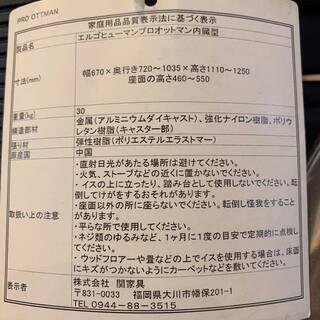 PRO OTTMAN
家庭用品品質表示法に基づく表示
製品名
エルゴヒューマンプロオットマン内臓型
寸法(mm)
幅670×奥行き720~1035×高さ1110~1250
座面の高さ460~550
重量(kg)
30
構造部材
金属(アルミニウムダイキャスト)、強化ナイロン樹脂、ポリウ
レタン樹脂(キャスター部)
張り材
弾性樹脂(ポリエステルエラストマー)
原産国
中国
取扱い上の注意
・直射日光があたる場所は避けてください。
・火気、ストーブなどの近くに置かないでください。
・イスの上に立ったり、踏み台として使用しないでください。転
倒してけがをするおそれがあります。
・座面以外の所に座らないでください。転倒し怪我をすること
があります。
・平らな所で使用してください。
・ネジ類のゆるみなど、1ヶ月に1度の目安で定期的に点検し
てください。
・ウッドフローアーや畳などの上でイスを使用する場合は、床面
にキズがつかないようにカーペットなどを敷いてください。
表示者
株式会社 関家具
〒831-0033 福岡県大川市幡保201-1
TEL 0944-88-3515